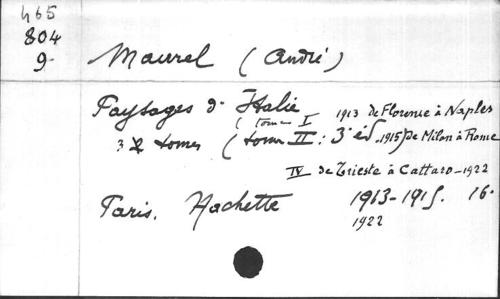 465
804
9
Maurel (André)
Paysages d'Italie
(tome I 1913 de Florence à Naples
3 tomes (tome II : 3e éd. 1915) de Milan à Rome
IV de Trieste à Cattaro - 1922
Paris. Hachette 1913-1915. 16°
1922